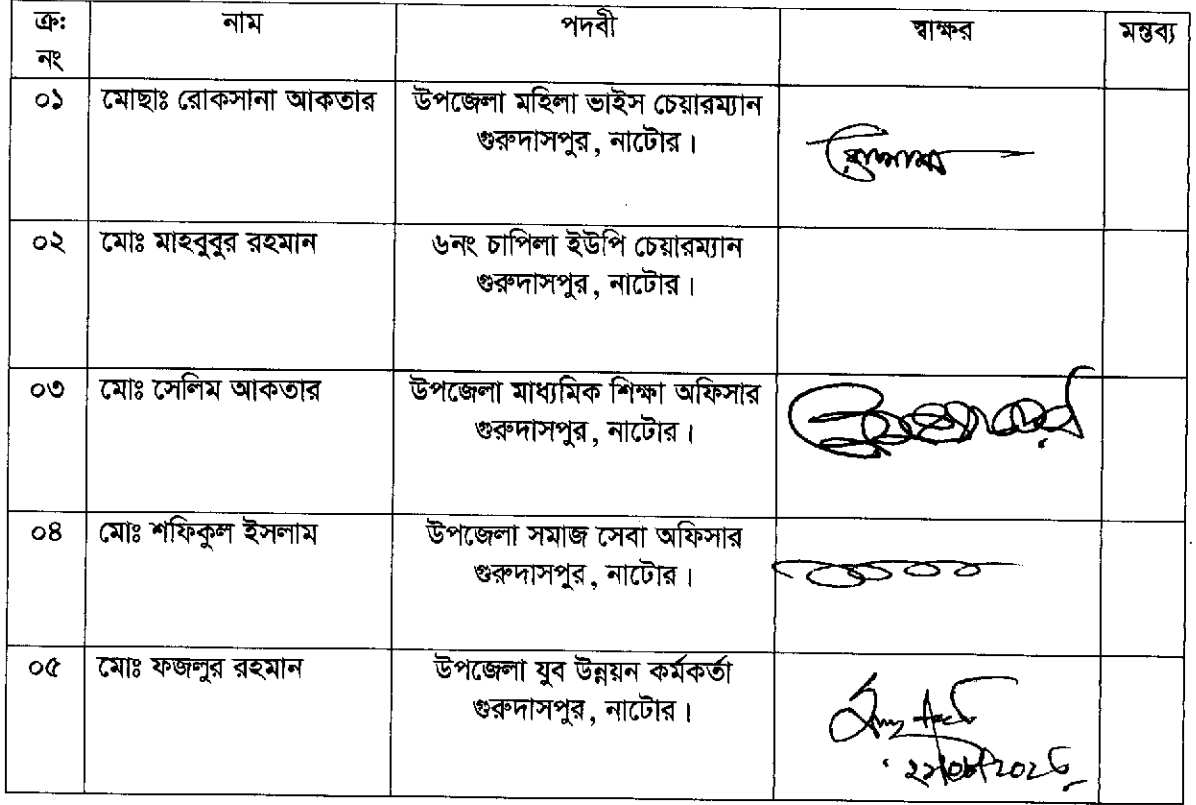 ক্র: নাম পদবী স্বাক্ষর মন্তব্য
নং
০১ মোছাঃ রোকসানা আকতার উপজেলা মহিলা ভাইস চেয়ারম্যান
গুরুদাসপুর, নাটোর।
০২ মোঃ মাহবুবুর রহমান ৬নং চাপিলা ইউপি চেয়ারম্যান
গুরুদাসপুর, নাটোর।
০৩ মোঃ সেলিম আকতার উপজেলা মাধ্যমিক শিক্ষা অফিসার
গুরুদাসপুর, নাটোর।
০৪ মোঃ শফিকুল ইসলাম উপজেলা সমাজ সেবা অফিসার
গুরুদাসপুর, নাটোর।
০৫ মোঃ ফজলুর রহমান উপজেলা যুব উন্নয়ন কর্মকর্তা
গুরুদাসপুর, নাটোর।